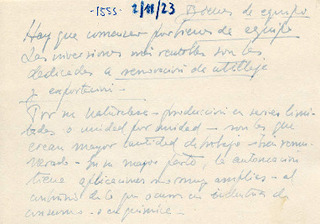 -1555- 2/11/23 Bienes de equipo
Hay que comenzar por bienes de equipo
Las inversiones más rentables son las
dedicadas a renovación de utillaje
y exportación.-
Por su naturaleza - producción en series limi-
tadas o unidad por unidad - son las que
crean mayor cantidad de trabajo - bien remu-
nerado - en su mayor parte, la automación
tiene aplicaciones no muy amplias - al
contrario de lo que ocurre en industria de
consumo - o en química -